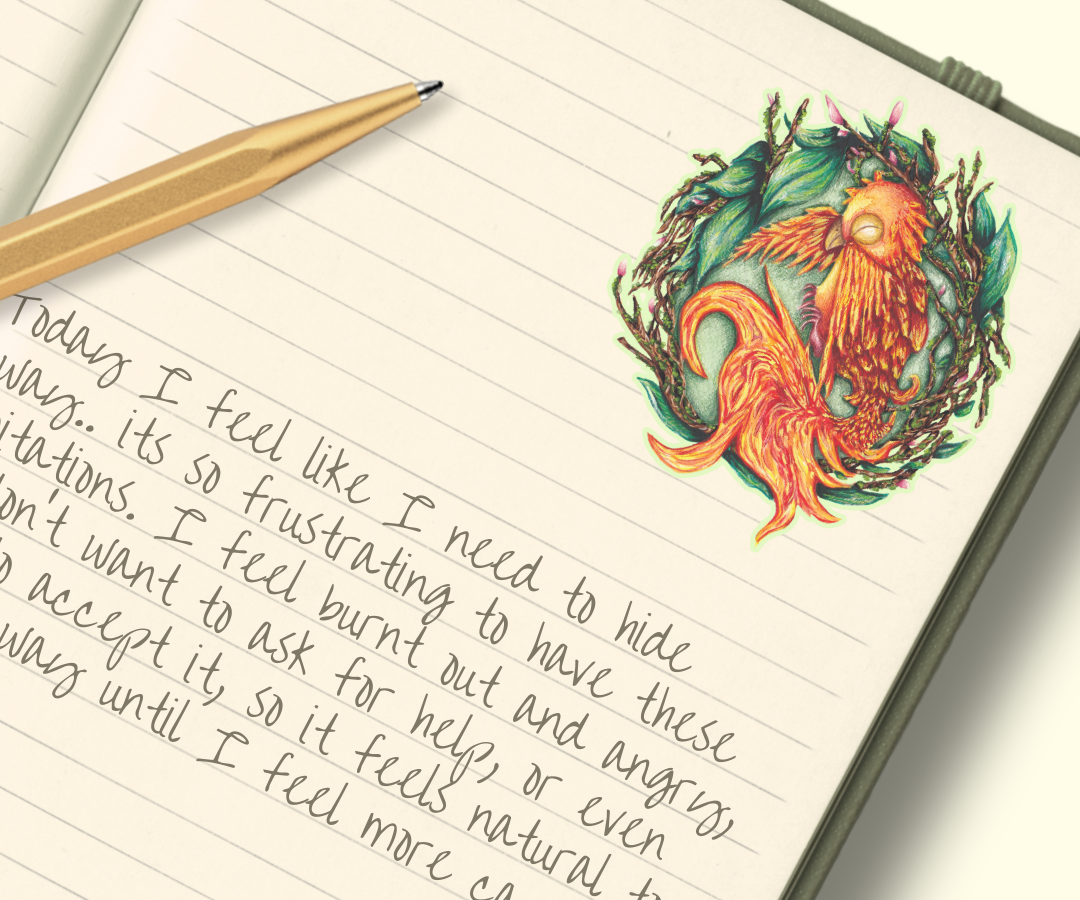 Today I feel like I need to hide
way.. its so frustrating to have these
itations. I feel burnt out and angry,
on't want to ask for help, or even
o accept it, so it feels natural to
way until I feel more ca